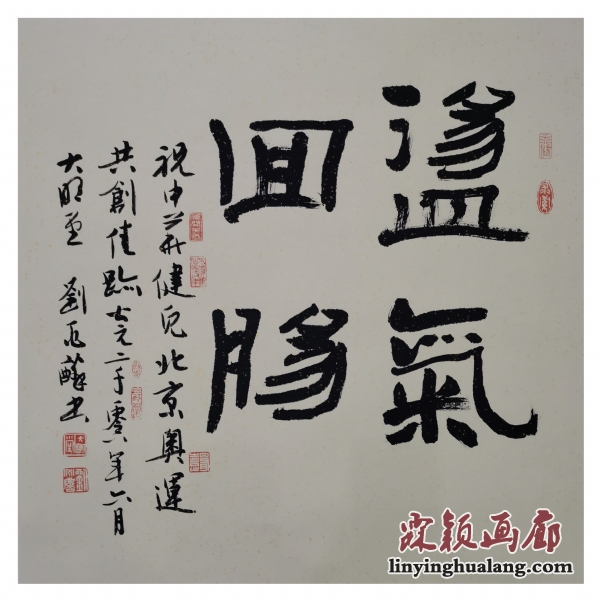 盪氣
回腸
祝中華健兒北京奧運
共創佳跡公元二千零八年六月
劉 蘇書
霖颖画廊
linyinghualang.com